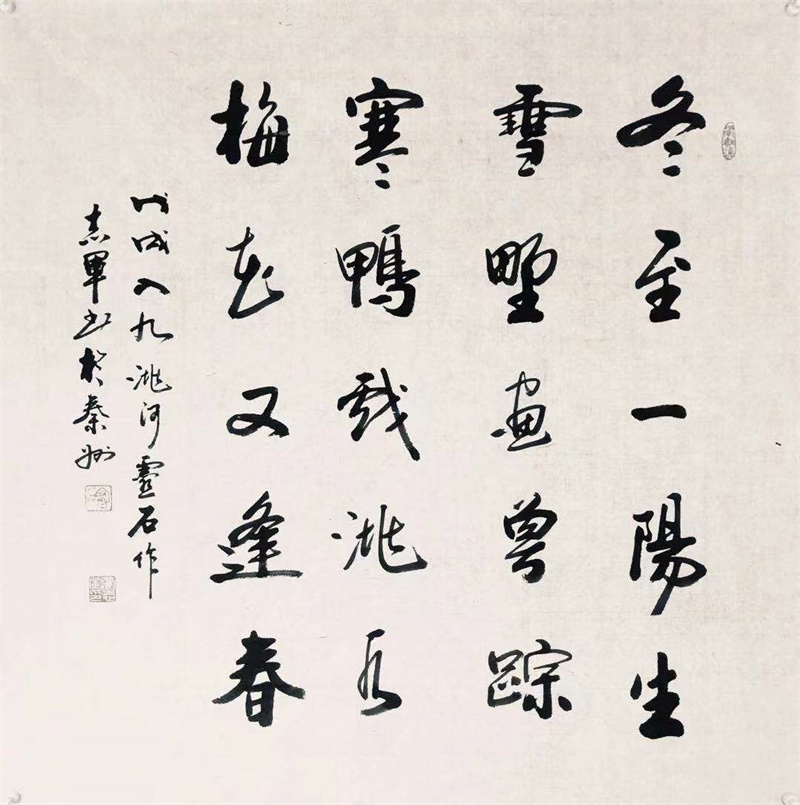 冬至一陽生
雪野画兽踪
寒鴨戏洮水
梅花又逢春
戊戌入九洮河靈石作
志軍书於秦州